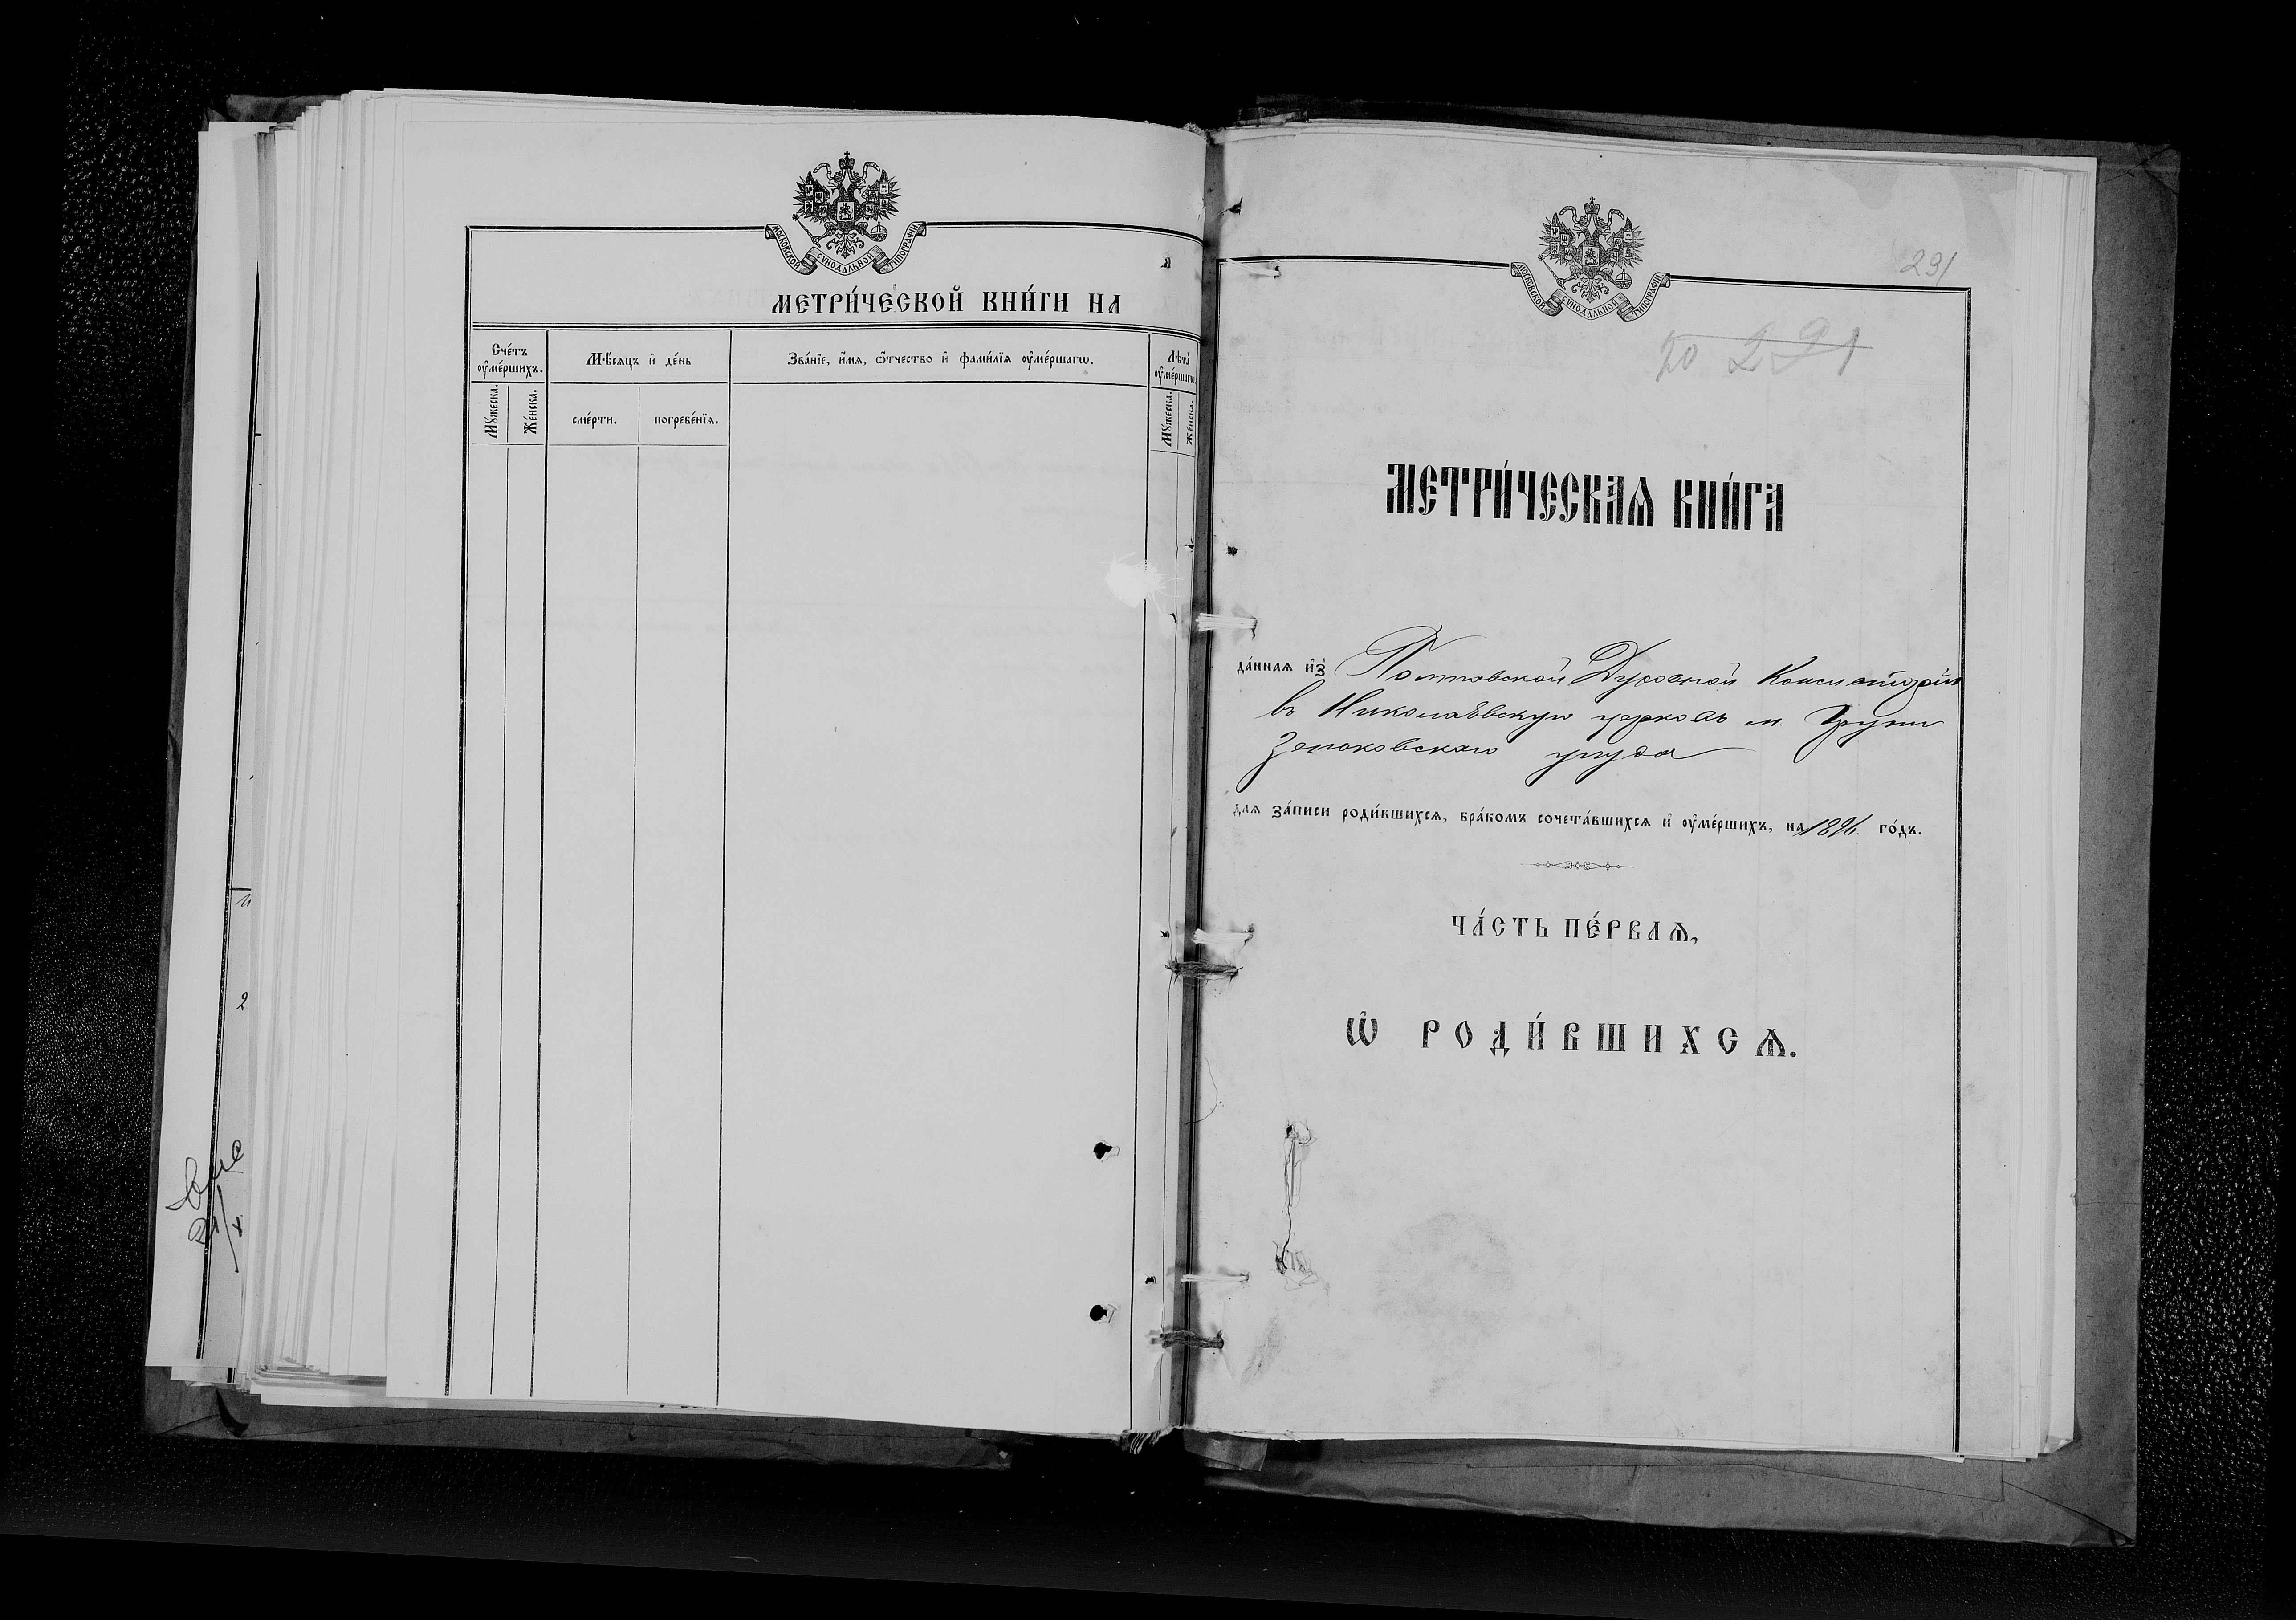 МОСКОВСКОЙ СѴНОДАЛЬНОЙ ТИПОГРАФІИ
МЕТРИ́ЧЕСКОЙ КНИ́ГИ НА
Сче́тъ ᲂу҆ме́ршихъ.
Мѣ́сяцъ и҆ де́нь
Зва́нїе, и҆́мѧ, ѻ҆́тчество и҆ фами́лїѧ ᲂу҆ме́ршагѡ.
Лѣта̀ ᲂу҆ме́ршагѡ.
Мꙋ́жеска.
Же́нска.
сме́рти.
погребе́нїѧ.
Мꙋ́жеска.
Же́нска.
2
31/X
МОСКОВСКОЙ СѴНОДАЛЬНОЙ ТИПОГРАФІИ
291
291
МЕТРИ́ЧЕСКАѦ КНИ́ГА
да́ннаѧ и҆з̾ Полтавской Духовной Консисторіи
въ Николаевскую церковь м. Груни
Зеньковскаго уѣзда
длѧ за́писи роди́вшихсѧ, бра́комъ сочета́вшихсѧ и҆ ᲂу҆ме́ршихъ, на 1896. го́дъ.
ЧА́СТЬ ПЕ́РВАѦ,
Ѡ҆ РОДИ́ВШИХСѦ.